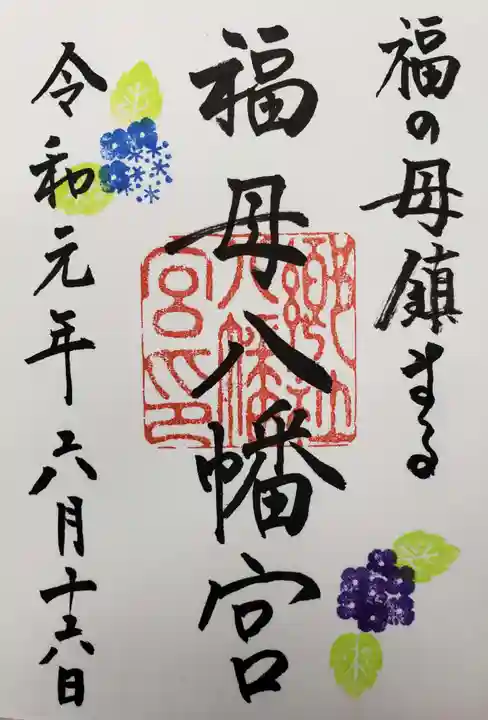 福の母鎮まる
福母八幡宮
郷社八幡宮印
令和元年六月十六日